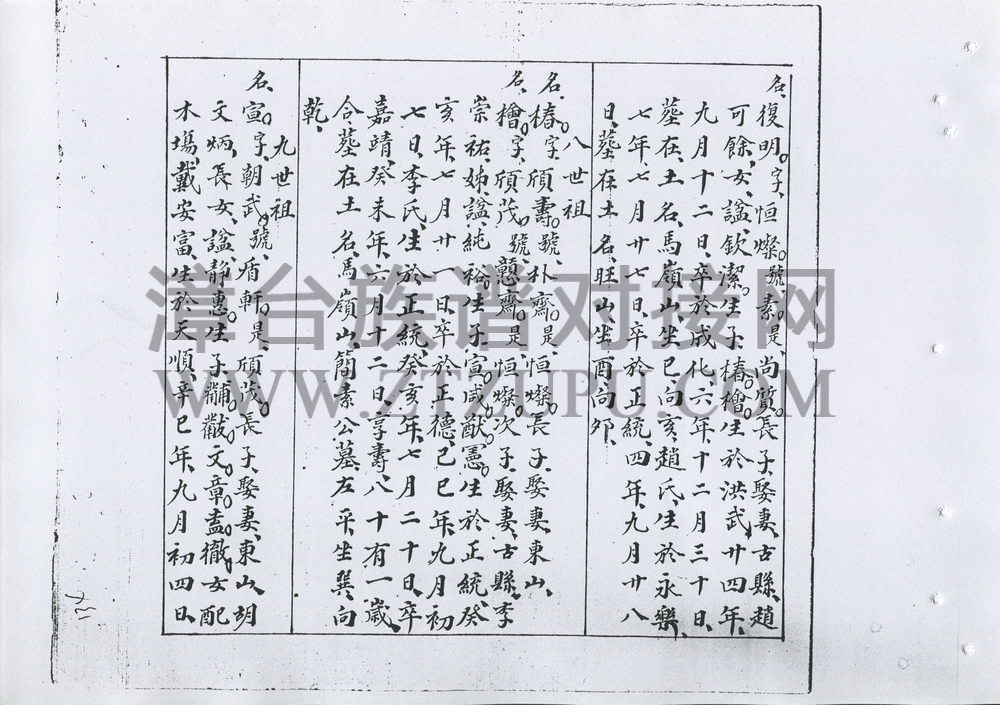 名、復明。字、恒燦。號素。是、尚質。長子、娶妻、古縣、趙
可餘、女、諡、欽潔。生子、椿檜。生於洪武、廿四年、
九月十二日、卒於成化、六年、十二月三十日、
塟在、土名、馬嶺山、坐巳向亥、趙氏、生於永樂、
七年、七月廿七日、卒於正統、四年、九月廿八
日、塟在土名、旺山、坐酉向夘、
八世祖
名、椿。字、頎壽。號、朴齋。是、恒燦。長子、娶妻、東山、
名、檜。字、頎茂。號、戇齋。是、恒燦。次子、娶妻、古縣、李
崇祐、姊、諡、純裕。生子、宣。咸。猷。憲。生於正統、癸
亥年、七月廿一日、卒於正德、己巳年、九月初
七日、李氏、生於正統、癸亥年、七月二十日、卒
嘉靖、癸未年、六月十二日、享壽、八十有一歲、
合塟在土名、馬嶺山、簡素公墓、左平、坐巽、向
乾、
九世祖
名、宣。字、朝武。號、盾軒。是、頎茂。長子、娶妻、東山、胡
文炳、長女、諡、靜惠。生子、黼。黻。文。章。盍。徹。女配
木塲、戴安富、生於天順、辛巳年、九月初四日、
漳台族谱对接网
WWW.ZTZUPU.COM